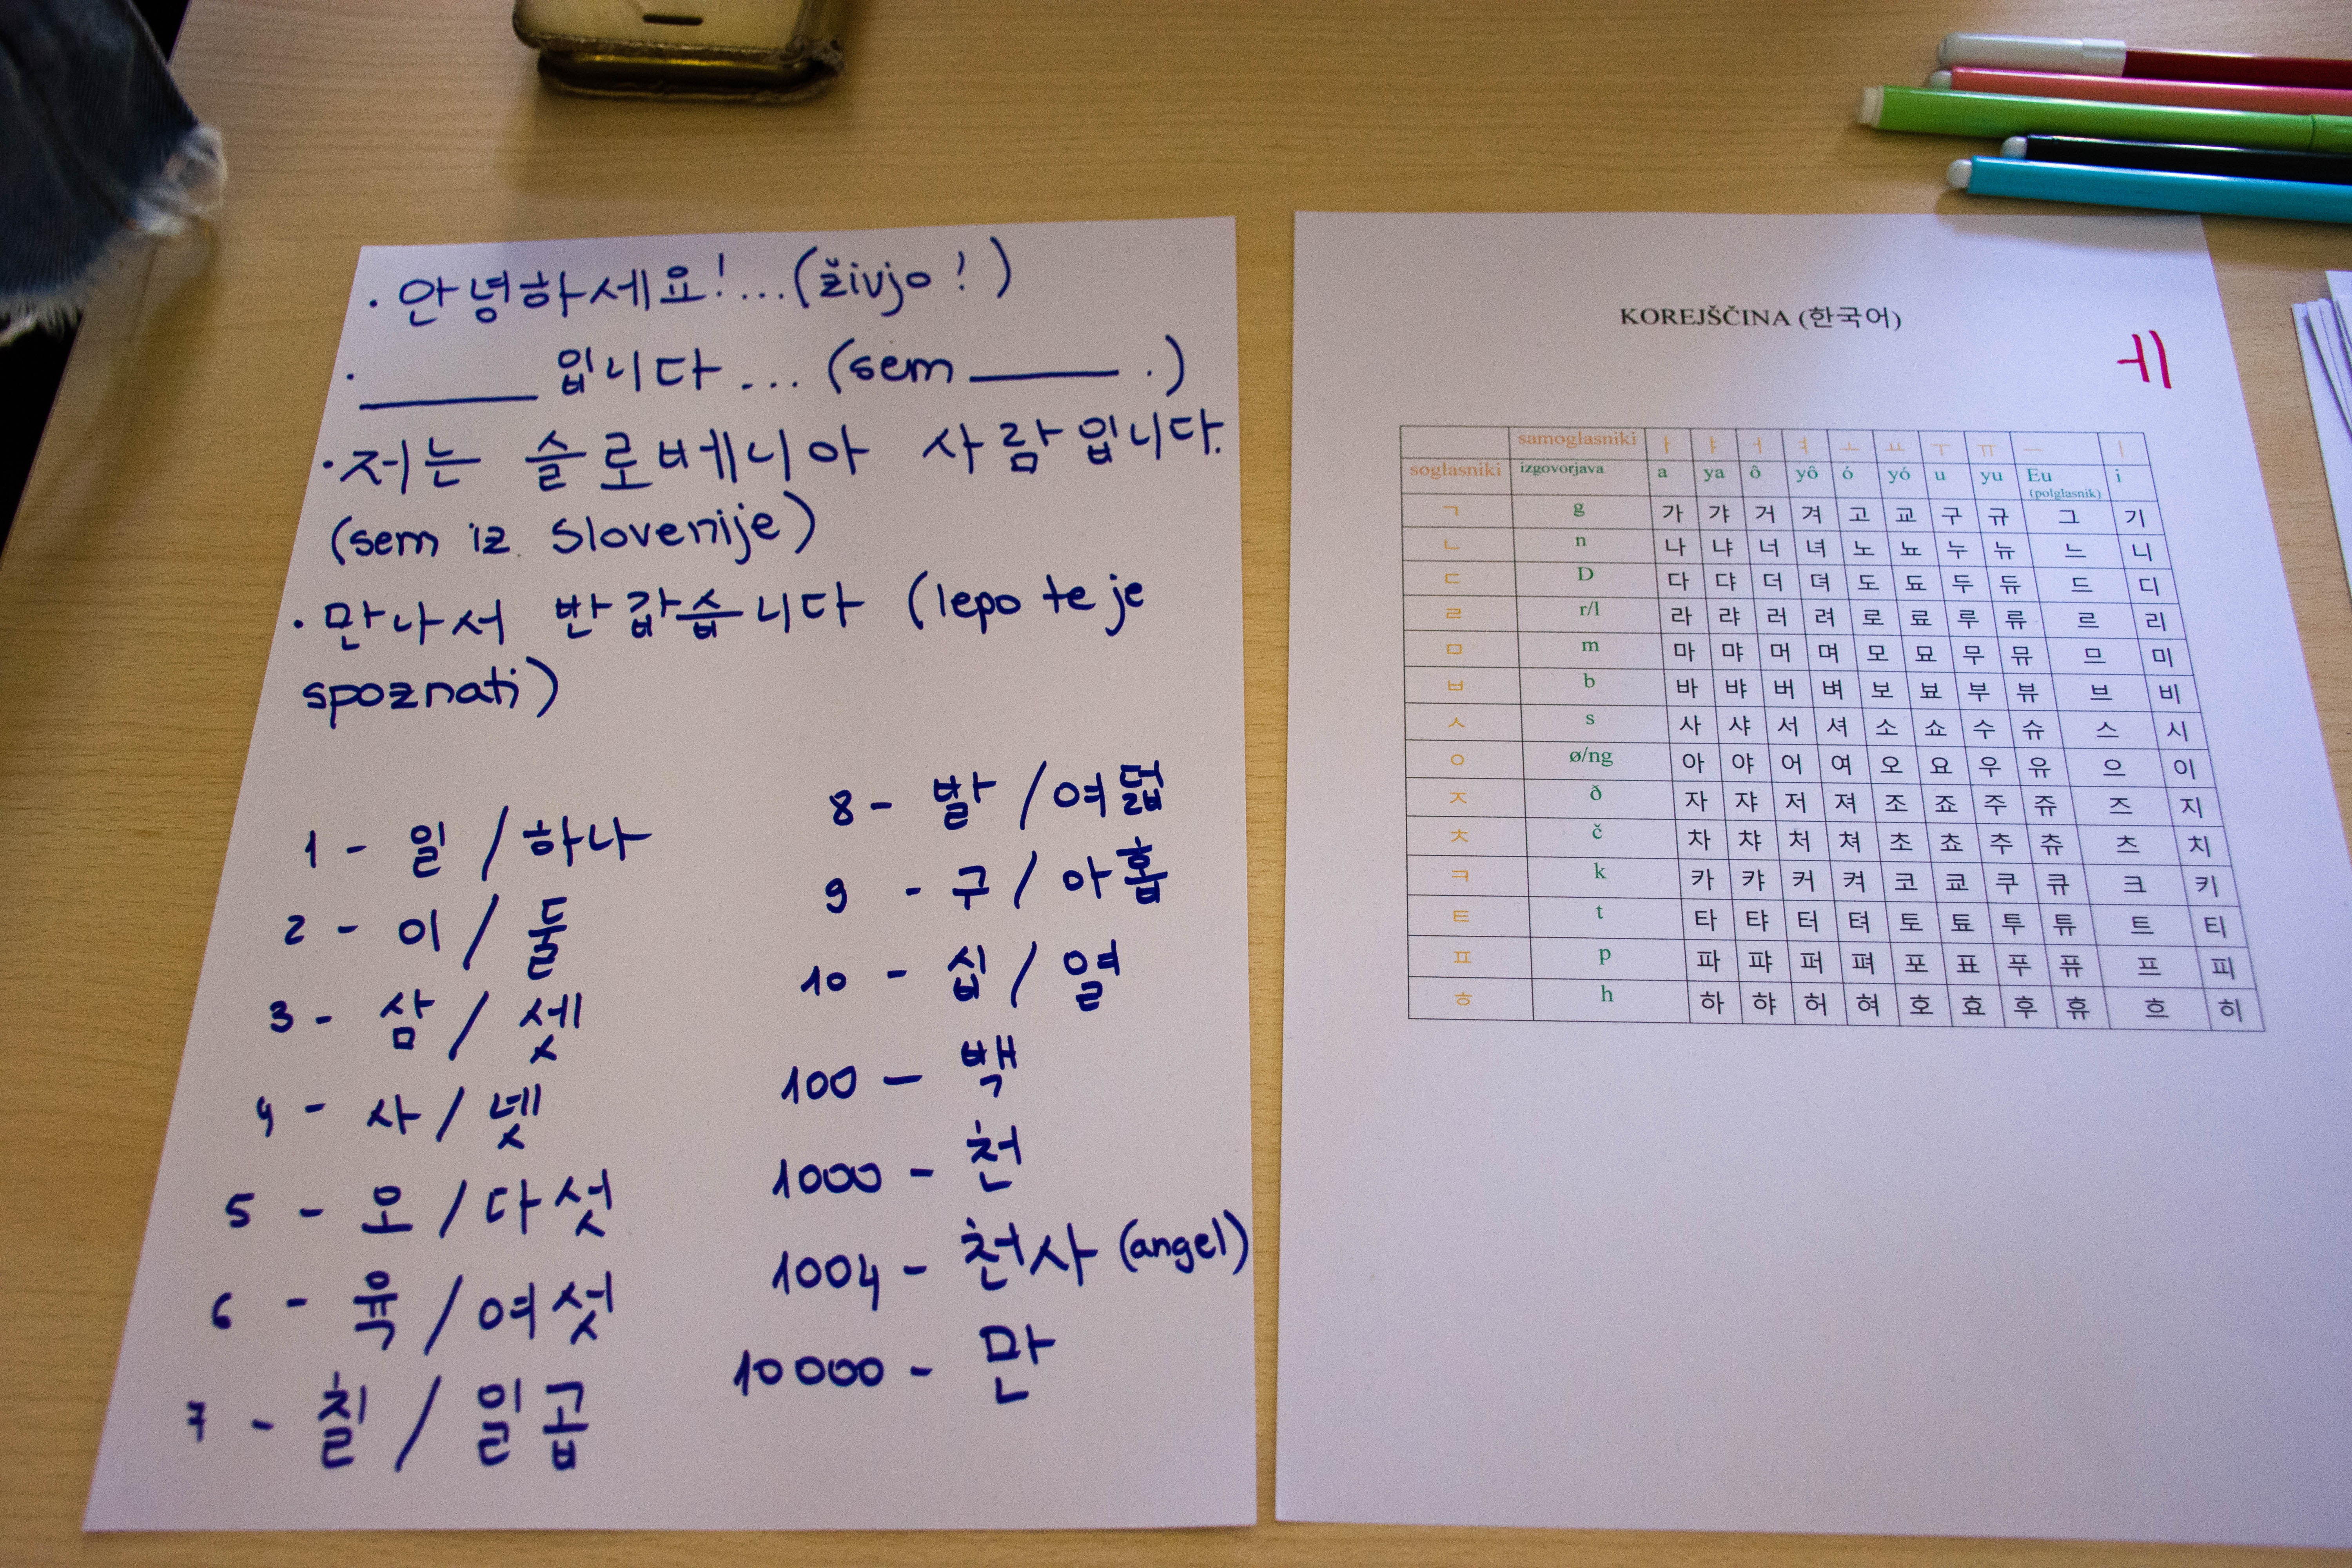 · 안녕하세요!...(živjo!)
· ______ 입니다... (sem ______.)
· 저는 슬로베니아 사람입니다.
(sem iz Slovenije)
· 만나서 반갑습니다 (lepo te je
spoznati)
1 - 일 / 하나
2 - 이 / 둘
3 - 삼 / 셋
4 - 사 / 넷
5 - 오 / 다섯
6 - 육 / 여섯
7 - 칠 / 일곱
8 - 발 / 여덟
9 - 구 / 아홉
10 - 십 / 열
100 - 백
1000 - 천
1004 - 천사 (angel)
10000 - 만
KOREJŠČINA (한국어)
ㅔ
samoglasniki ㅏ ㅑ ㅓ ㅕ ㅗ ㅛ ㅜ ㅠ ㅡ ㅣ
soglasniki izgovorjava a ya ô yô ó yó u yu Eu (polglasnik) i
ㄱ g 가 갸 거 겨 고 교 구 규 그 기
ㄴ n 나 냐 너 녀 노 뇨 누 뉴 느 니
ㄷ D 다 댜 더 뎌 도 됴 두 듀 드 디
ㄹ r/l 라 랴 러 려 로 료 루 류 르 리
ㅁ m 마 먀 머 며 모 묘 무 뮤 므 미
ㅂ b 바 뱌 버 벼 보 뵤 부 뷰 브 비
ㅅ s 사 샤 서 셔 소 쇼 수 슈 스 시
ㅇ ø/ng 아 야 어 여 오 요 우 유 으 이
ㅈ ð 자 쟈 저 져 조 죠 주 쥬 즈 지
ㅊ č 차 챠 처 쳐 초 쵸 추 츄 츠 치
ㅋ k 카 캬 커 켜 코 쿄 쿠 큐 크 키
ㅌ t 타 탸 터 텨 토 툐 투 튜 트 티
ㅍ p 파 퍄 퍼 펴 포 표 푸 퓨 프 피
ㅎ h 하 햐 허 혀 호 효 후 휴 흐 히